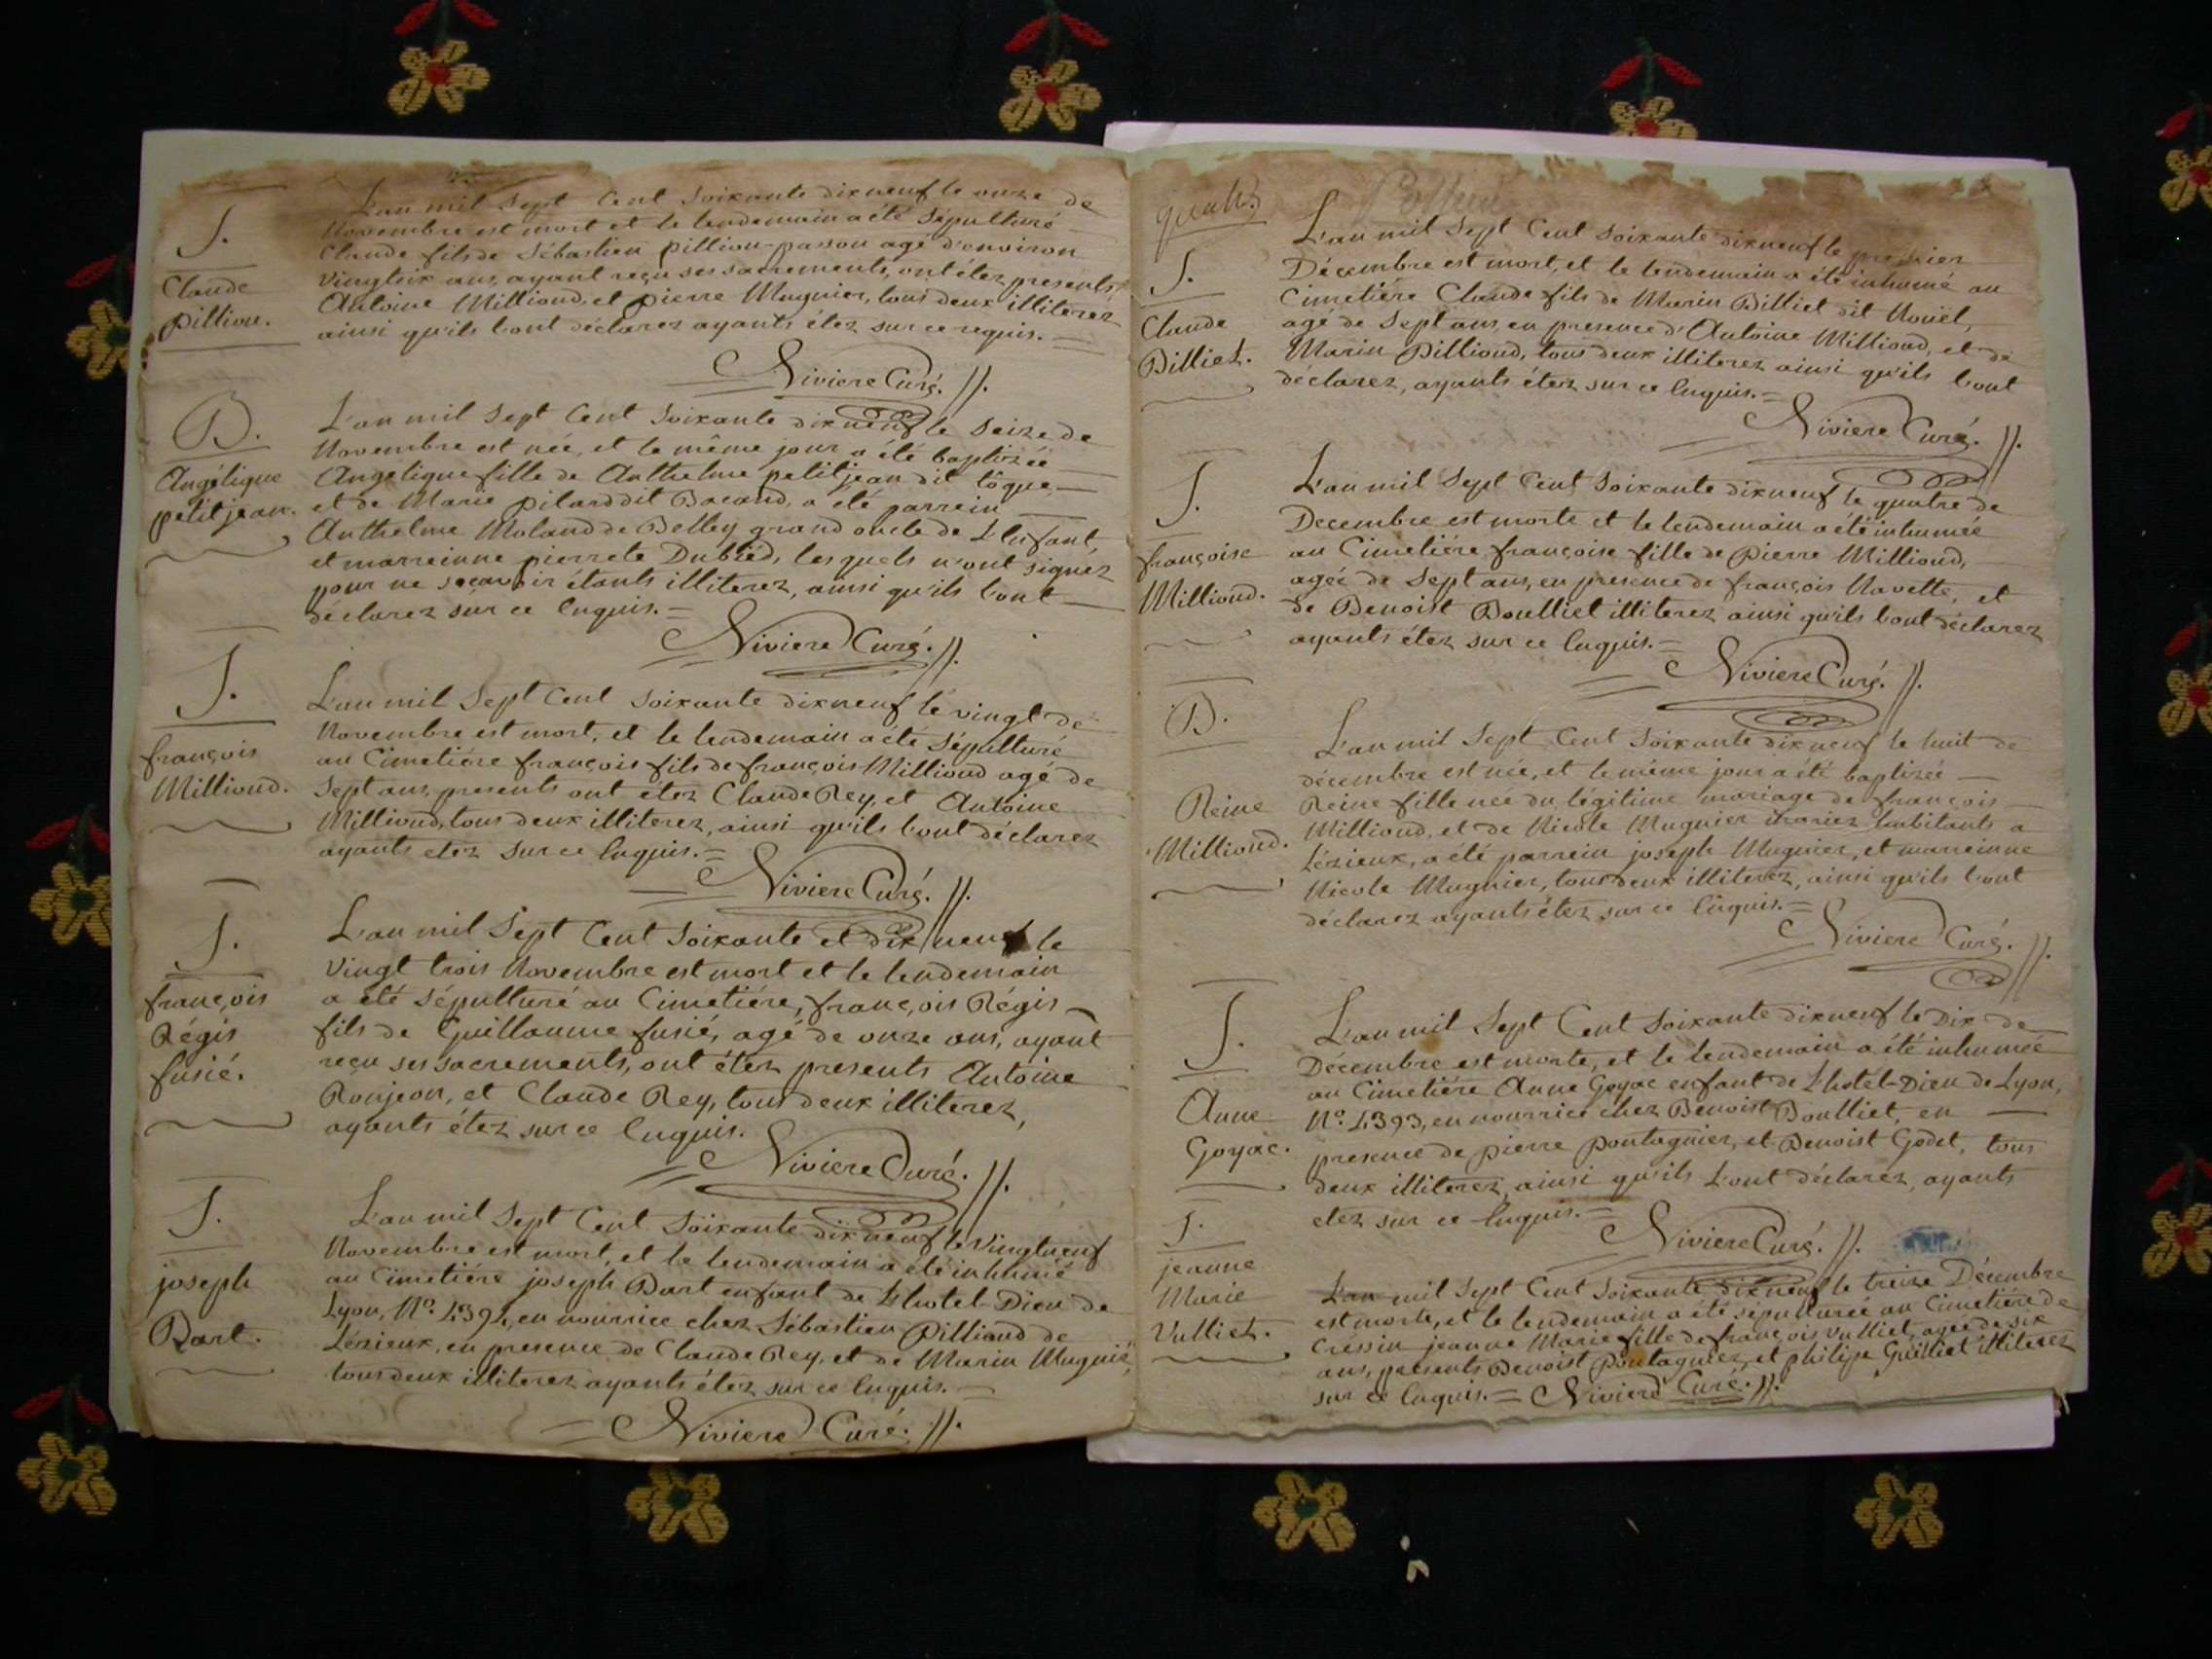 S.
Claude
pillion.
L'an mil Sept Cent Soixante dix neuf le onze de
Novembre est mort et le lendemain a été Sépulturé
Claude fils de Sébastien pillion-passon agé d'environ
vingtsix ans, ayant reçu ses sacrements, ont étez presents,
Antoine Milliond, et pierre Mugnier, tous deux illiterez
ainsi qu'ils l'ont déclarez ayants étez sur ce requis.
Niviere Curé.
B.
Angélique
petitjean.
L'an mil Sept Cent Soixante dix neuf le Seize de
Novembre est née, et le même jour a été baptisée
Angelique fille de Anthelme petitjean dit tôque
et de Marie pilard dit Bacand, a été parrein
Anthelme Moland de Belley grand oncle de L'Enfant,
et marreinne pierrete Dubied, lesquels n'ont signez
pour ne sçavoir étants illiterez, ainsi qu'ils l'ont
déclarez sur ce Enquis. =
Niviere Curé.
S.
françois
Milliond.
L'an mil Sept Cent Soixante dix neuf le vingt de
Novembre est mort, et le lendemain a été Sépulturé
au Cimetiére françois fils de françois Milliond agé de
Sept ans, presents ont etez Claude Rey, et Antoine
Milliond, tous deux illiterez, ainsi qu'ils l'ont déclarez
ayants etez sur ce Enquis. =
Niviere Curé.
S.
françois
Régis
fusié.
L'an mil Sept Cent Soixante et dix neuf le
Vingt trois Novembre est mort et le lendemain
a été Sépulturé au Cimetiére, françois Régis
fils de Guillaume fusié, agé de onze ans, ayant
reçu ses sacrements, ont étez presents Antoine
Roujeon, et Claude Rey, tous deux illiterez,
ayants étez sur ce Enquis.
Niviere Curé.
S.
joseph
Bart.
L'an mil Sept Cent Soixante dix neuf le Vingtneuf
Novembre est mort, et le lendemain a été inhumé
au Cimetiére joseph Bart enfant de L'hotel-Dieu de
Lyon, No. en nourrice chez Sébastien Pilliond de
Lézieux, en presence de Claude Rey, et de Marin Mugnié,
tous deux illiterez ayants étez sur ce Enquis.
= Niviere Curé.
S.
Claude
Billiet.
L'an mil Sept Cent Soixante dix neuf le premier
Décembre est mort, et le lendemain a été inhumé au
Cimetiére Claude fils de Marin Billiet dit Nouël,
agé de Sept ans, en presence d'Antoine Milliond, et de
Marin Pilliond, tous deux illiterez ainsi qu'ils l'ont
déclarez, ayants étez sur ce Enquis. =
Niviere Curé.
S.
françoise
Milliond.
L'an mil Sept Cent Soixante dix neuf le quatre de
Decembre est morte et le lendemain a été inhumée
au Cimetiére françoise fille de pierre Milliond,
agée de Sept ans, en presence de françois Navette, et
de Benoist Boulliet illiterez ainsi qu'ils l'ont déclarez
ayants étez sur ce Enquis. =
Niviere Curé.
B.
Reine
Milliond.
L'an mil Sept Cent Soixante dix neuf le huit de
décembre est née, et le même jour a été baptisée
Reine fille née du légitime mariage de françois
Milliond, et de Nicole Mugnier mariez habitants a
Lézieux, a été parrein joseph Mugnier, et marreinne
Nicole Mugnier, tous deux illiterez, ainsi qu'ils l'ont
déclarez ayants étez sur ce Enquis. =
Niviere Curé.
S.
Anne
Goyac.
L'an mil Sept Cent Soixante dix neuf le Dix de
Décembre est morte, et le lendemain a été inhumée
au Cimetiére Anne Goyac enfant de L'hotel-Dieu de Lyon,
No. en nourrice chez Benoist Boulliet, en
presence de pierre pontagnier, et Benoist Godet, tous
deux illiterez, ainsi qu'ils L'ont déclarez, ayants
etez sur ce Enquis. =
Niviere Curé.
S.
jeanne
Marie
Vulliet.
L'an mil Sept Cent Soixante dix neuf le treize Décembre
est morte, et le lendemain a été sépulturée au Cimetiére de
Cressin jeanne Marie fille de françois Vulliet, agée de six
ans, presents Benoist pontagnier, et philipe Guilliet illiterez
sur ce Enquis. = Niviere Curé.